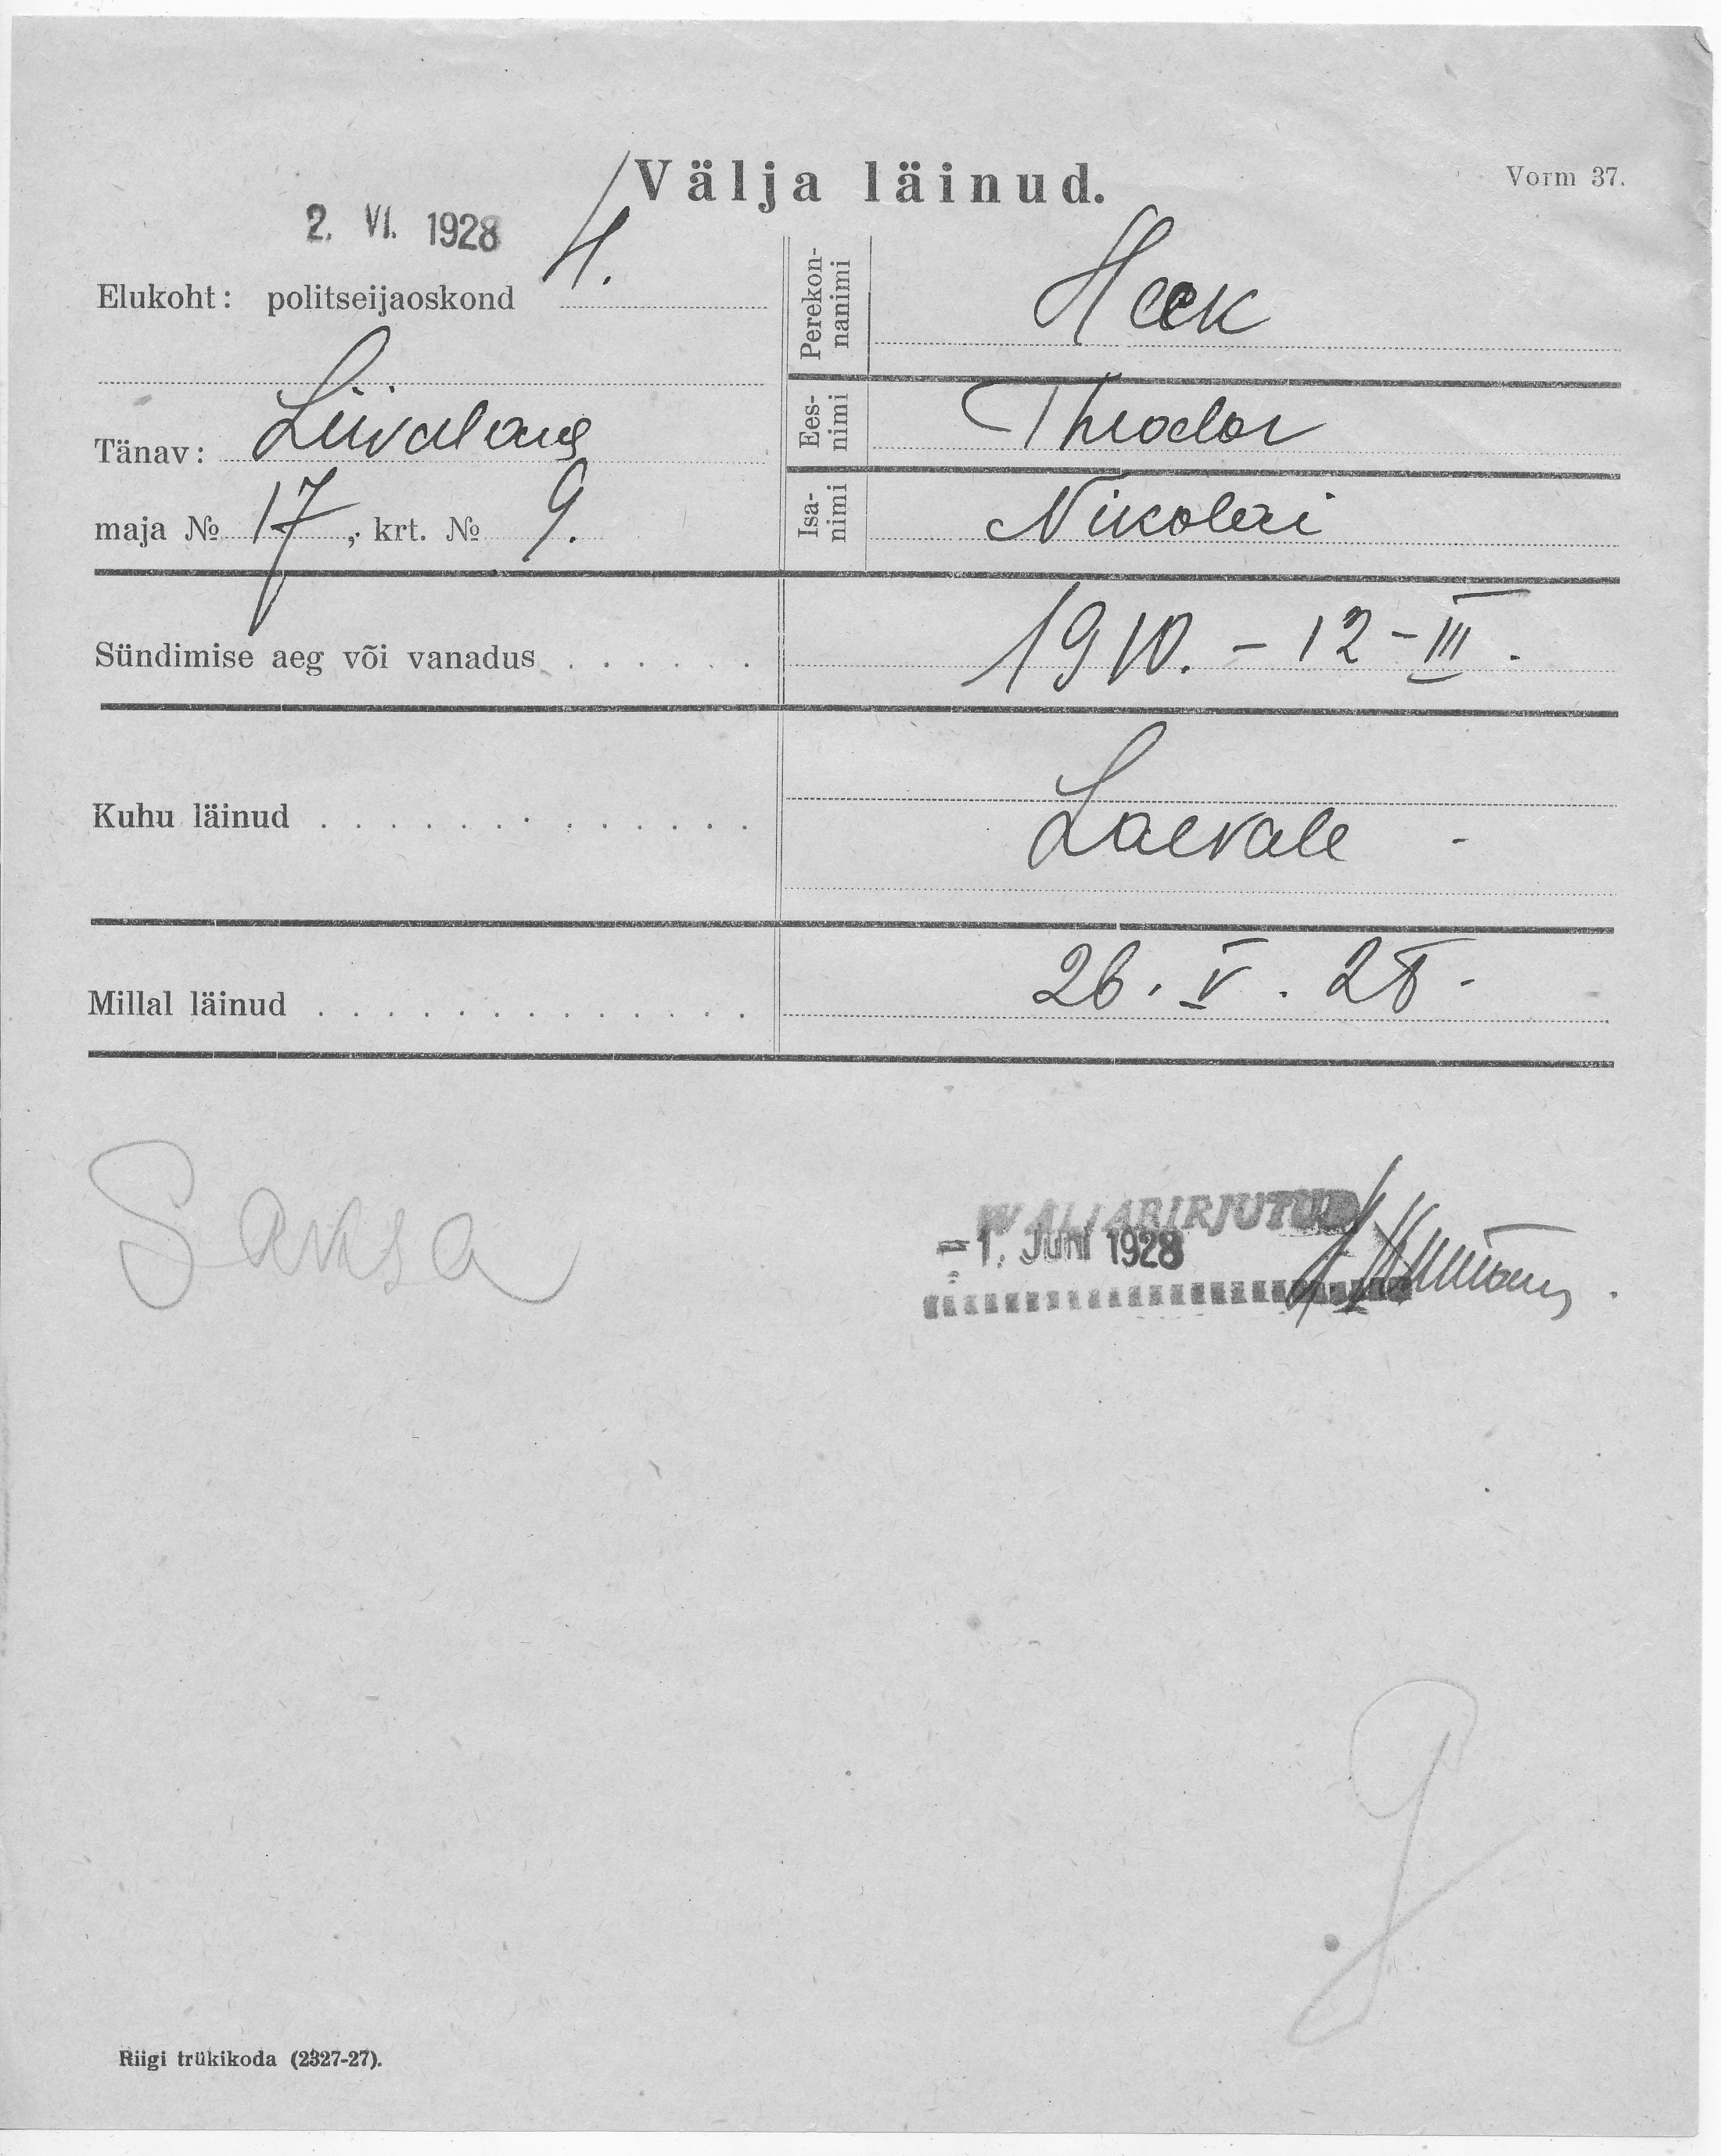 Välja läinud.
Vorm 37.
2. VI. 1928
Elukoht: politseijaoskond 4.
Tänav: Liivalaug
maja № 17, krt. № 9.
Perekon-
nanimi
Heek
Ees-
nimi
Theodor
Isa-
nimi
Nikolai
Sündimise aeg või vanadus 1910. - 12 - III.
Kuhu läinud Laevale -
Millal läinud 26. V. 28.
Saksa
WÄLJAKIRJUTUD
- 1. Juni 1928
Riigi trükikoda (2327-27).